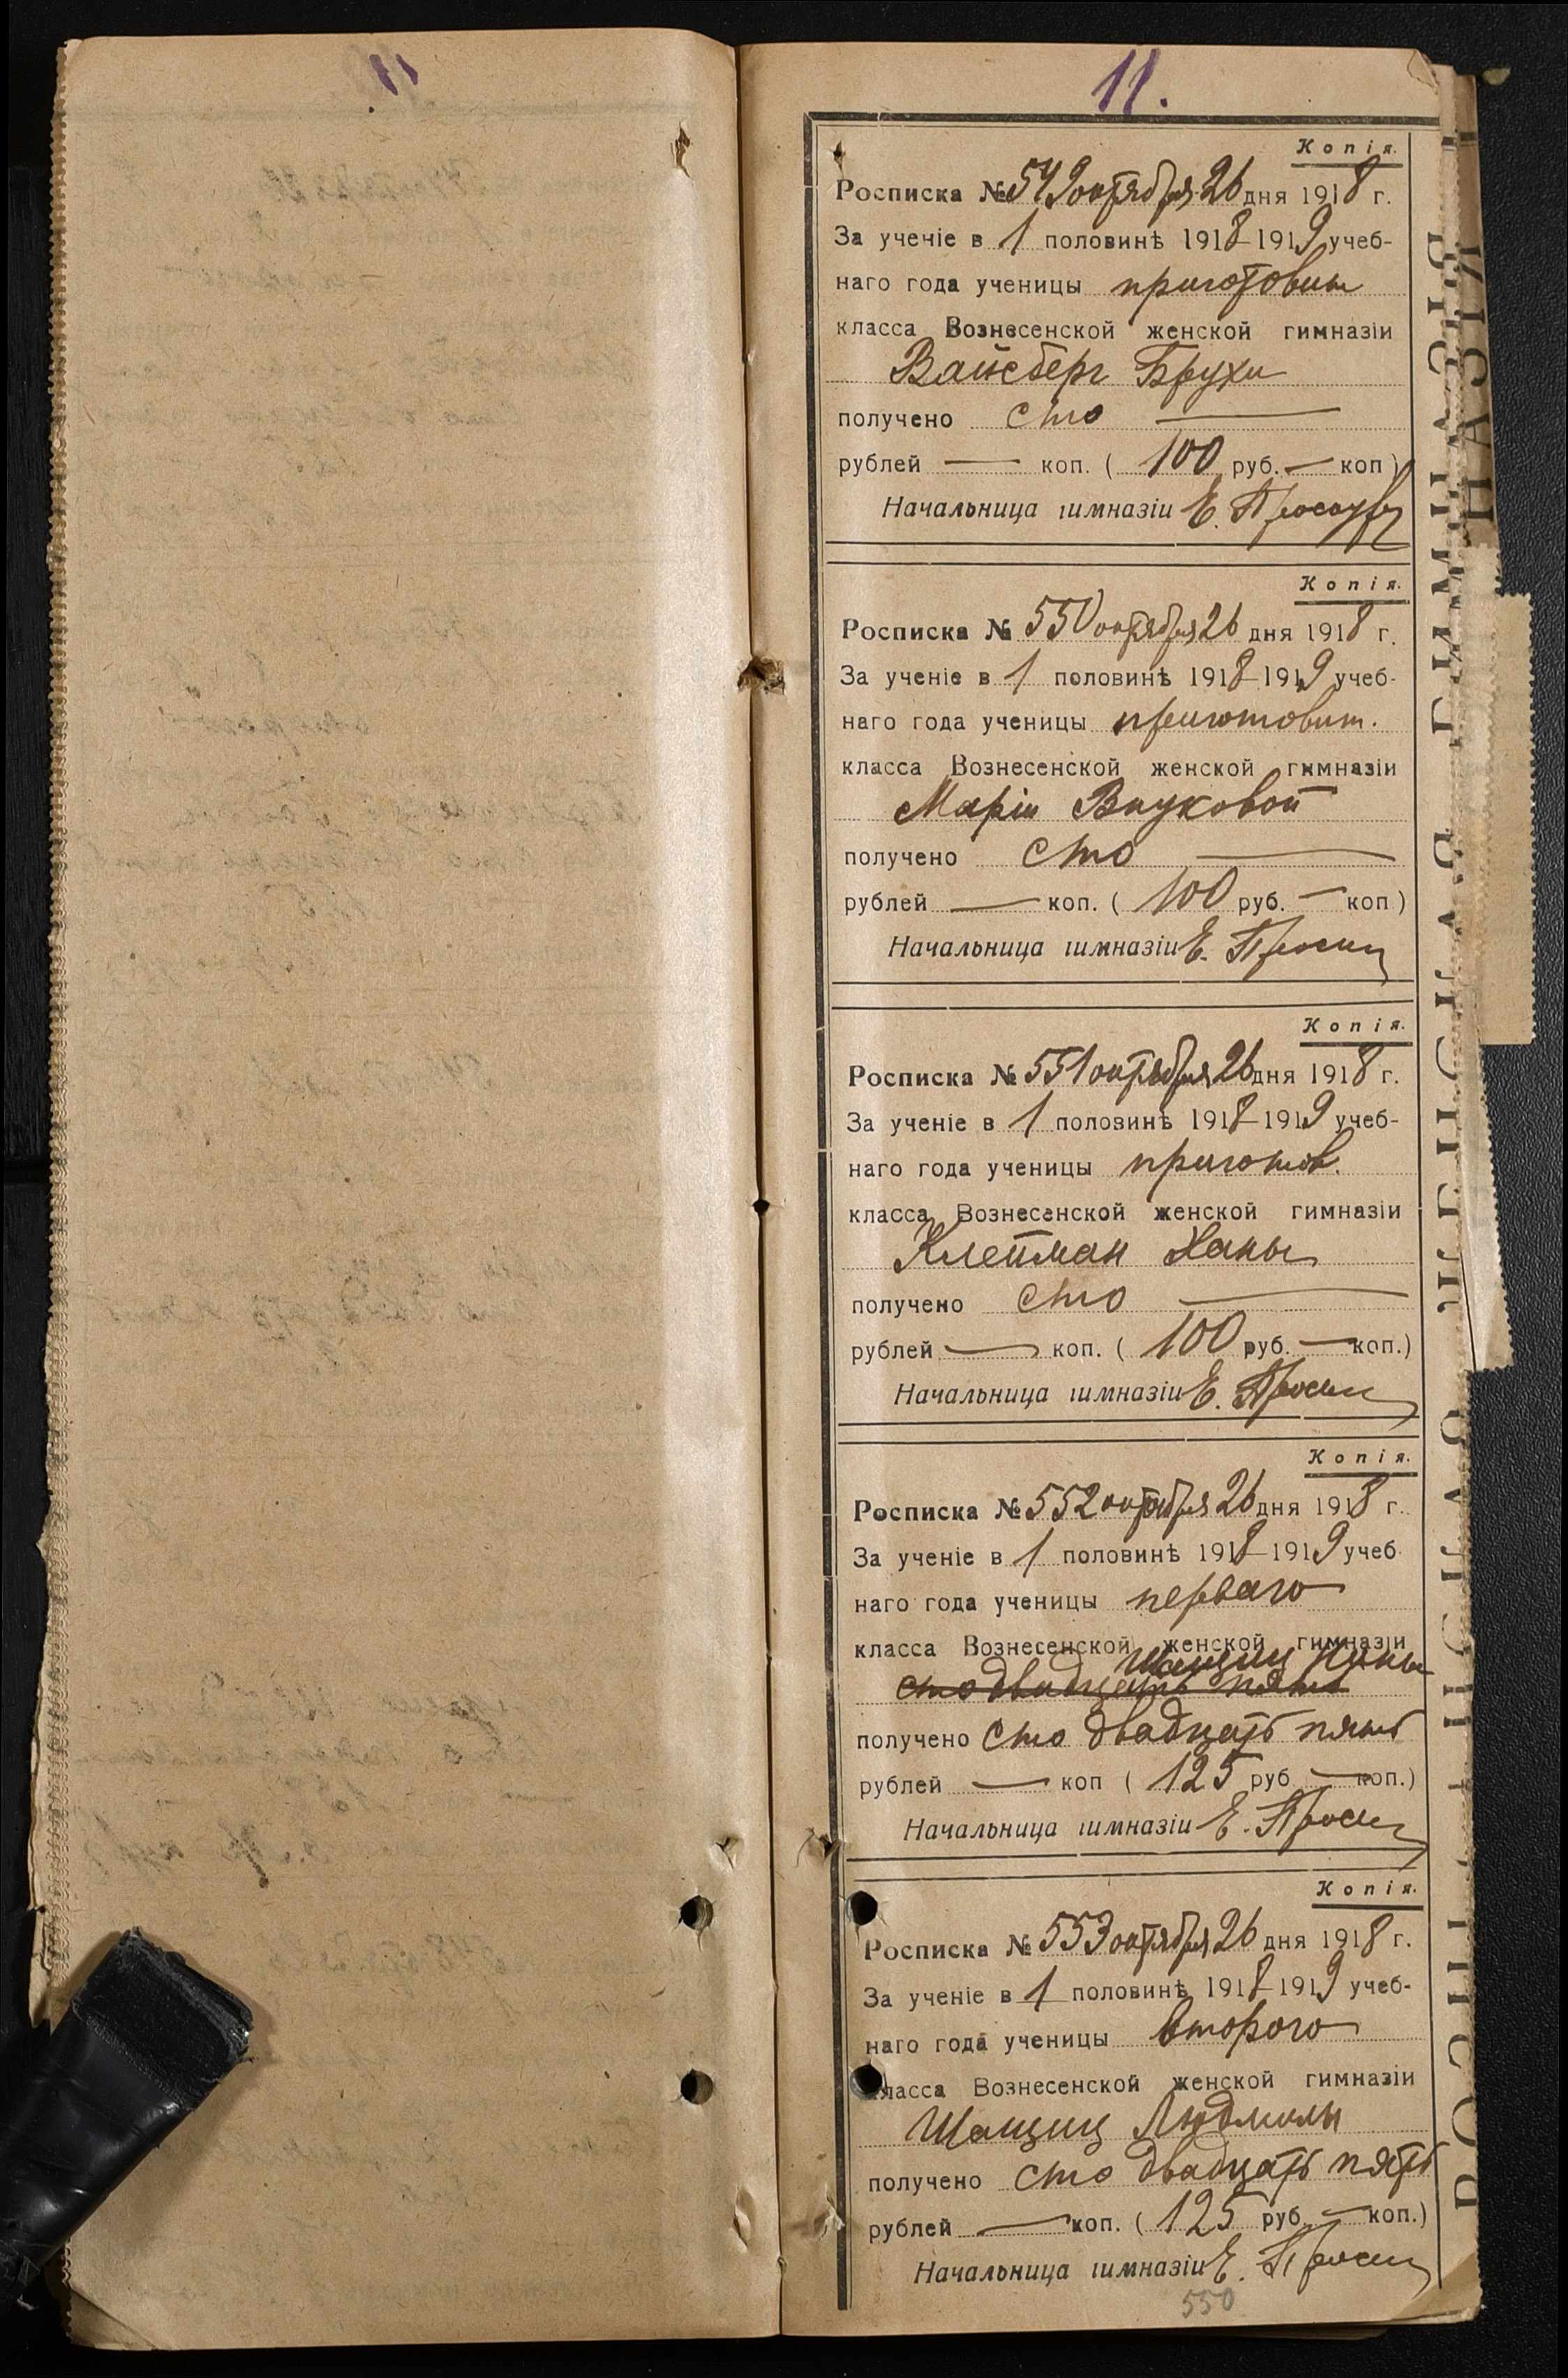 11.
Копія.
Росписка № 549 октября 26 дня 1918 г.
За ученіе в 1 половинѣ 1918-1919 учеб-
наго года ученицы приготовит
класса Вознесенской женской гимназіи
Вайсберг Брухи
получено сто —
рублей — коп. ( 100 руб. — коп )
Начальница гимназіи Е.
Копія.
Росписка № 550 октября 26 дня 1918 г.
За ученіе в 1 половинѣ 1918-1919 учеб-
наго года ученицы приготовит.
класса Вознесенской женской гимназіи
Маріи Внуковой
получено сто —
рублей — коп. ( 100 руб. — коп )
Начальница гимназіи Е.
Копія.
Росписка № 551 октября 26 дня 1918 г.
За ученіе в 1 половинѣ 1918-1919 учеб-
наго года ученицы приготов.
класса Вознесенской женской гимназіи
Клейман Ханы
получено сто —
рублей — коп. ( 100 руб. — коп.)
Начальница гимназіи Е.
Копія.
Росписка № 552 октября 26 дня 1918 г.
За ученіе в 1 половинѣ 1918-1919 учеб
наго года ученицы перваго
класса Вознесенской женской гимназіи
Шащиц Нины
сто двадцать пять
получено сто двадцать пять
рублей — коп ( 125 руб — коп.)
Начальница гимназіи Е.
Копія.
Росписка № 553 октября 26 дня 1918 г.
За ученіе в 1 половинѣ 1918-1919 учеб-
наго года ученицы второго
класса Вознесенской женской гимназіи
Шащиц Людмилы
получено сто двадцать пять
рублей — коп. ( 125 руб. — коп.)
Начальница гимназіи Е.
550